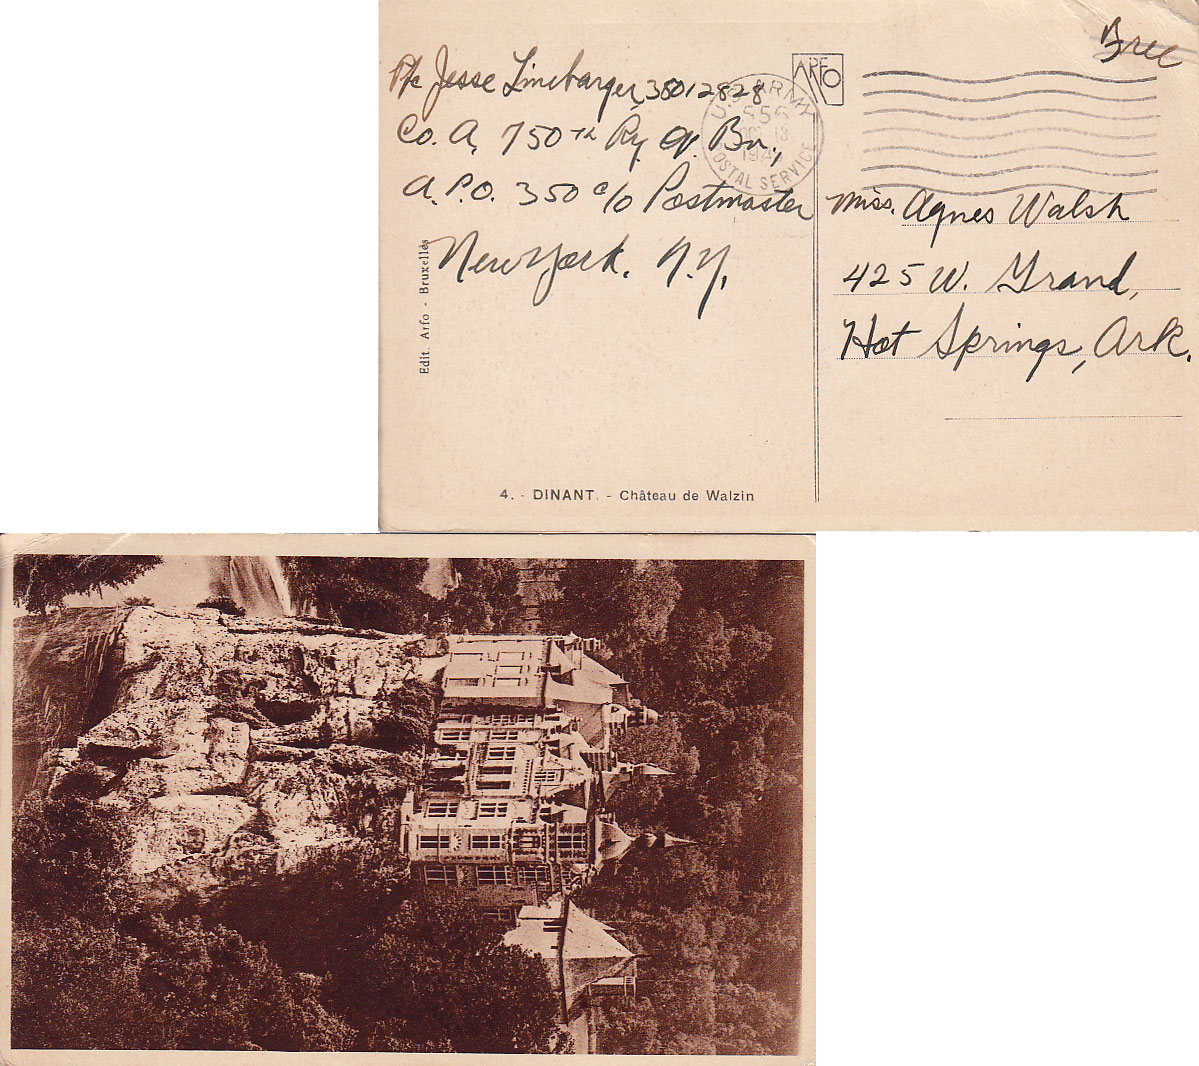 Free
Pfc Jesse Linebarger, 38012828
Co. A, 750th Ry. Op. Bn.,
A.P.O. 350 c/o Postmaster
New York. N.Y.
ARFO
U.S. ARMY
556
POSTAL SERVICE
Miss. Agnes Walsh
425 W. Grand,
Hot Springs, Ark.
Edit. Arfo - Bruxelles
4. - DINANT. - Château de Walzin